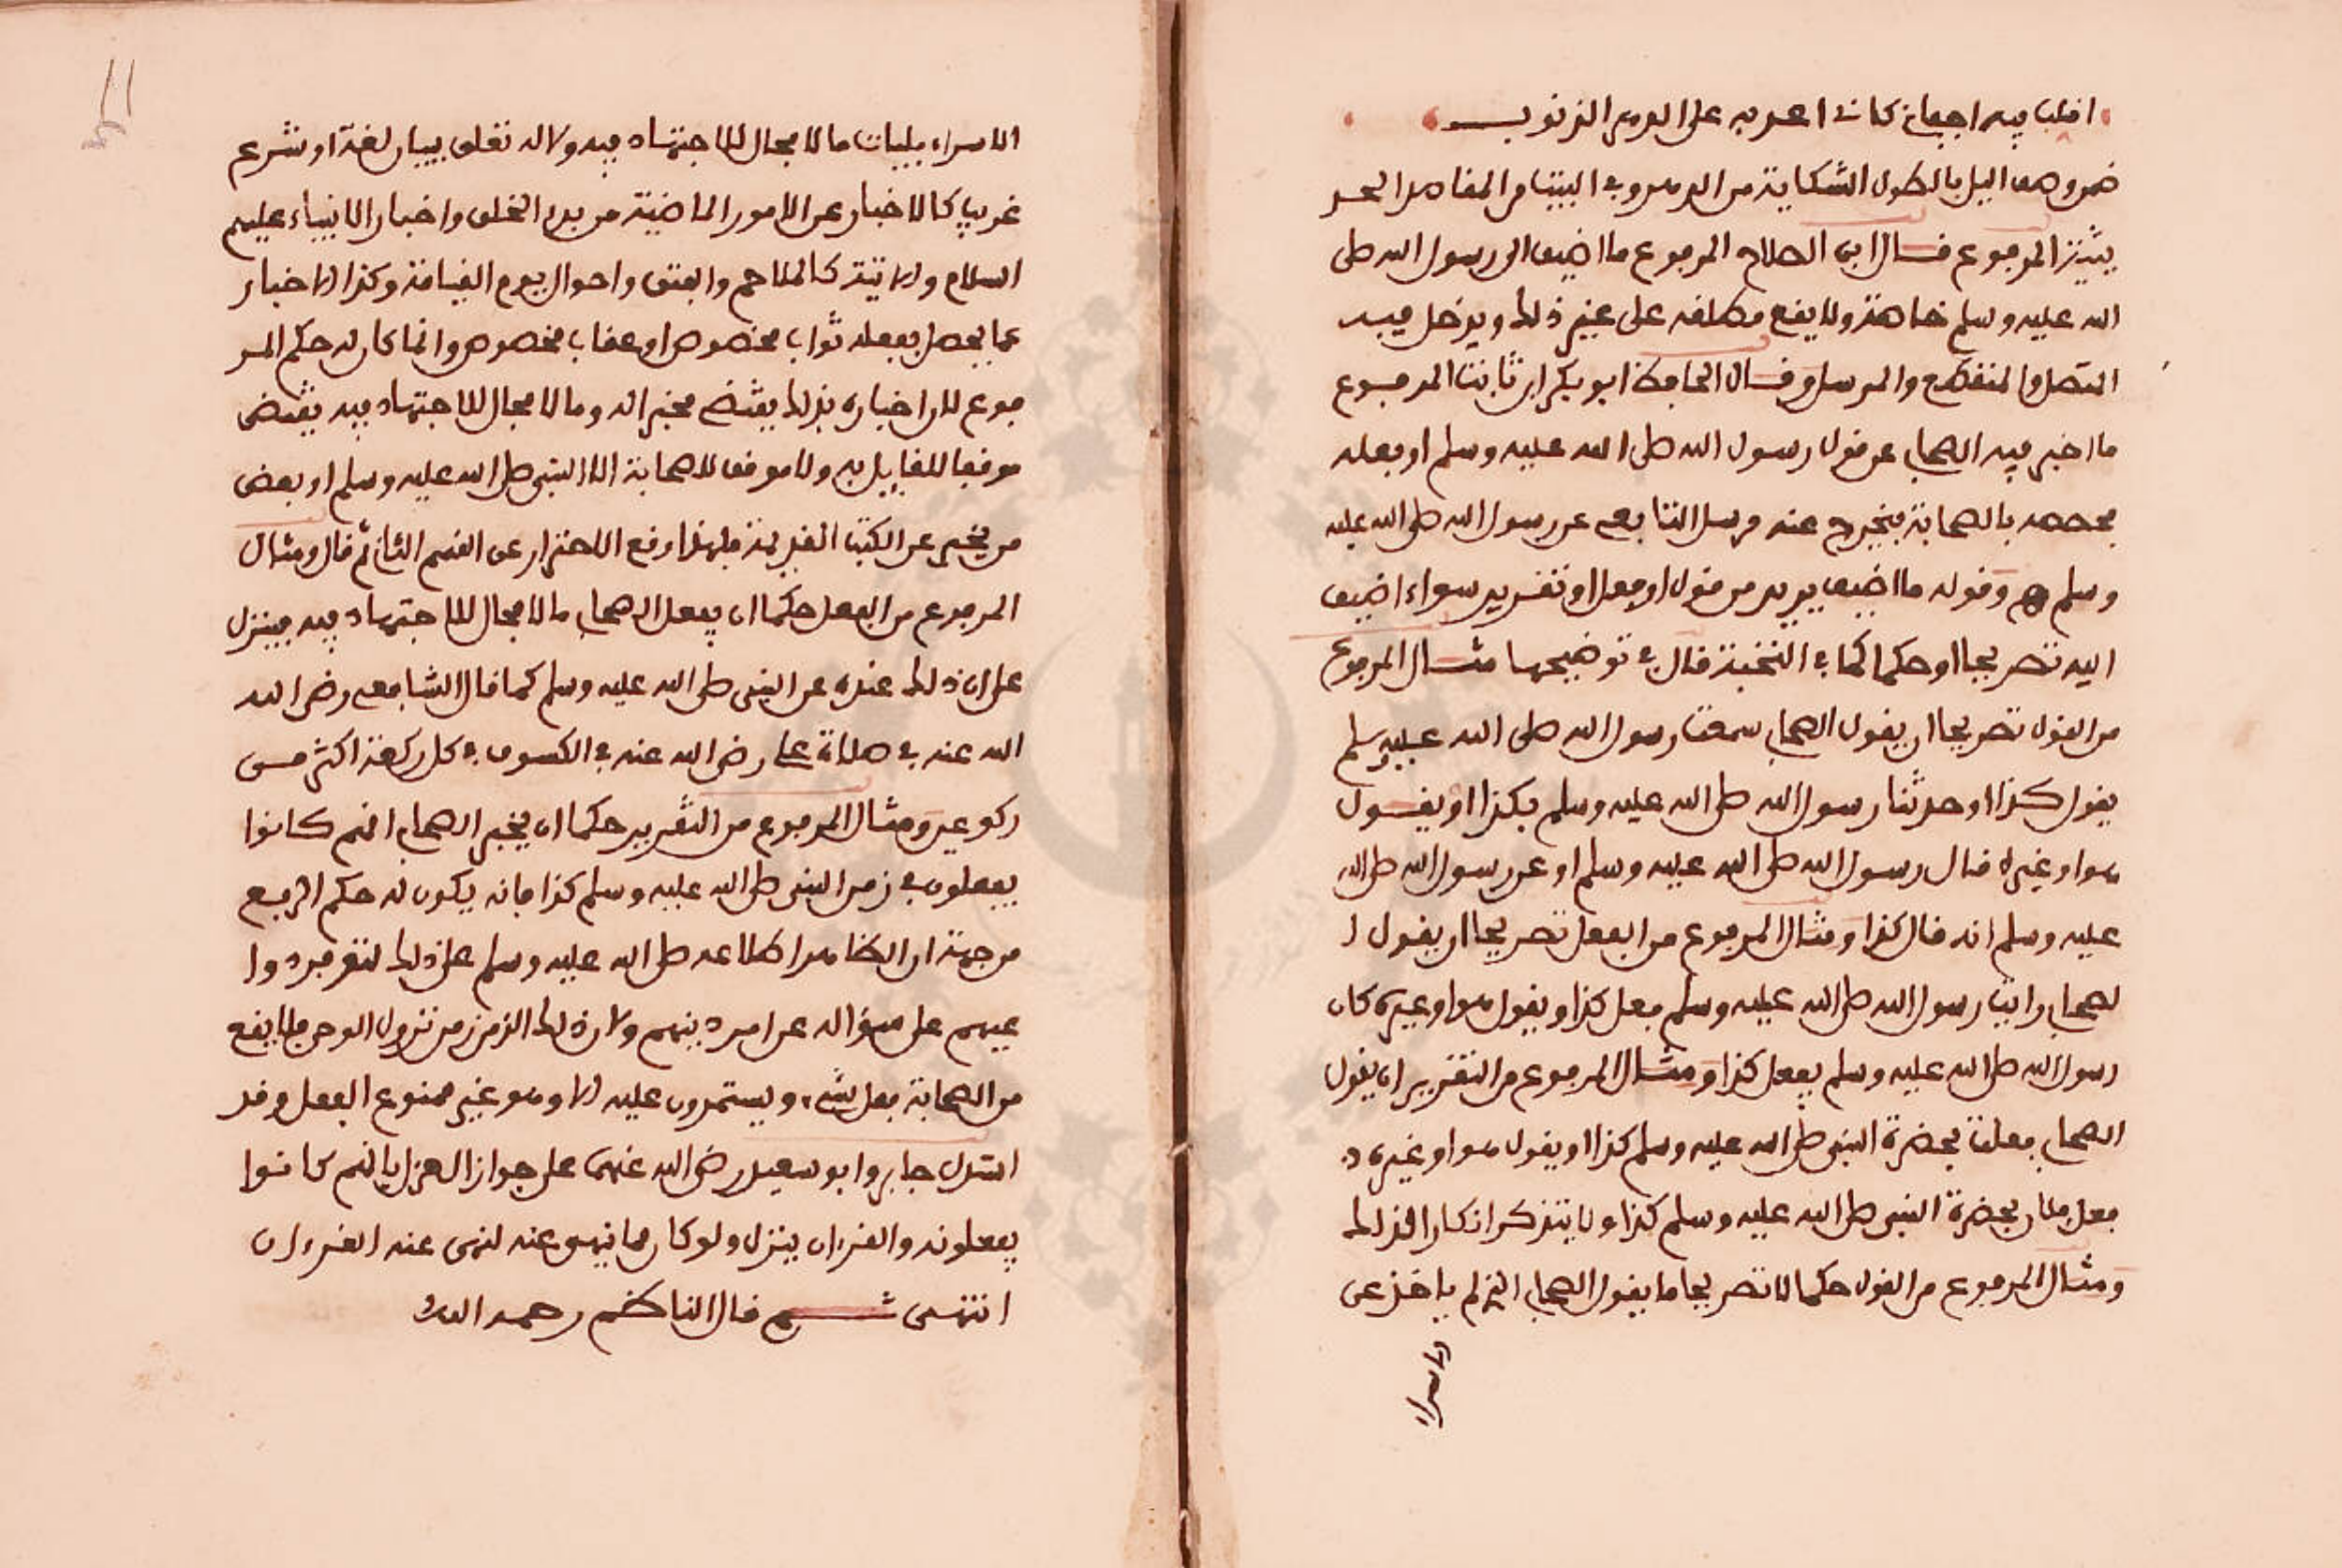 اقلب فيه اجفاني كاني اعد به على الدهر الذنوبــا
ضمن وصف اليل بالطول الشكاية من الدهر وفي البيت من المقاصد الحسـ
يثية المرفوع قـال ابن الصلاح المرفوع ما اضيف الى رسول الله صلى
الله عليه وسلم خاصة ولا يقع مطلقه على غير ذلك ويدخل فيـه
المتصل والمنقطع والمرسل وقـال الحافظ ابو بكر ابن ثابت المرفـوع
ما اخبر فيه الصحابي عن قول رسول الله صلى الله عليه وسلم او فعله
فخصه بالصحابة فيخرج عنه مرسل التابعي عن رسول الله صلى الله عليه
وسلم وقوله ما اضيف يريد من قول او فعل او تقرير سواء اضيف
اليه تصريحا او حكما كما في النخبة قال في توضيحها مثـال المرفوع
من القول تصريحا ان يقول الصحابي سمعت رسول الله صلى الله عليه وسلم
يقول كذا او حدثنا رسول الله صلى الله عليه وسلم بكذا او يقـول
هو او غيره قال رسول الله صلى الله عليه وسلم او عن رسول الله صلى الله
عليه وسلم انه قال كذا ومثال المرفوع من الفعل تصريحا ان يقول ا
لصحابي رايت رسول الله صلى الله عليه وسلم فعل كذا ويقول هو او غيره كان
رسول الله صلى الله عليه وسلم يفعل كذا ومثـال المرفوع من التقرير ان يقول
الصحابي فعلت بحضرة النبي صلى الله عليه وسلم كذا او يقول هو او غيره
فعل فلان بحضرة النبي صلى الله عليه وسلم كذا ولا يتذكر انكاره لذلك
ومثـال المرفوع من القول حكما لا تصريحا ما يقول الصحابي الذي لم ياخذ عن
الاسراء
الاسراءيليات ما لا مجال للاجتهاد فيه ولا له تعلق ببيان لغة او شرع
غريب كالاخبار عن الامور الماضية من بدء الخلق واخبار الانبياء عليهم
السلام والاتية كالملاحم والفتن واحوال يوم القيامة وكذا الاخبار
عما يحصل بفعله ثواب مخصوص او عقاب مخصوص وانما كان له حكم المـر
فوع لان اخباره بذلك يقتضي مخبرا له وما لا مجال للاجتهاد فيه يقتضي
موقفا للقايل به ولا موقف للصحابة الا النبي صلى الله عليه وسلم او بعض
من يخبر عن الكتب القديمة فلهذا وقع الاحتراز عن القسم الثاني ثم قال ومثال
المرفوع من الفعل حكما ان يفعل الصحابي ما لا مجال للاجتهاد فيه فينزل
على ان ذلك عنده عن النبي صلى الله عليه وسلم كما قال الشافعي رضي الله
الله عنه في صلاة علي رضي الله عنه في الكسوف في كل ركعة اكثر مـن
ركوعين ومثـال المرفوع من التقرير حكما ان يخبر الصحابي انهم كانوا
يفعلون في زمن النبي صلى الله عليه وسلم كذا فانه يكون له حكم الرفـع
من جهة ان الظاهر اطلاعه صلى الله عليه وسلم على ذلك لتوفر دوا
عيهم على سؤاله عن امر دينهم ولان ذلك الزمن زمن نزول الوحي فلا يقع
من الصحابة فعل شيء ويستمرون عليه الا وهو غير ممنوع الفعل وقد
استدل جابر وابو سعيد رضي الله عنهما على جواز العزل بانهم كانـوا
يفعلونه والقرءان ينزل ولو كان مما ينهى عنه لنهى عنه القرءان
انتهـى ثــم قال الناظم رحمه الله